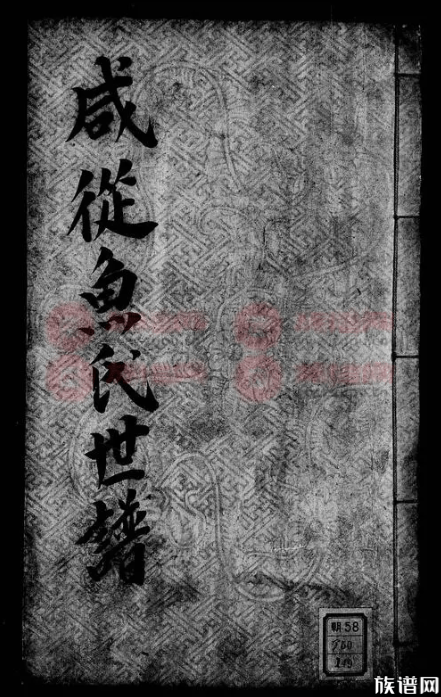 咸從魚氏世譜
朝58
族谱网